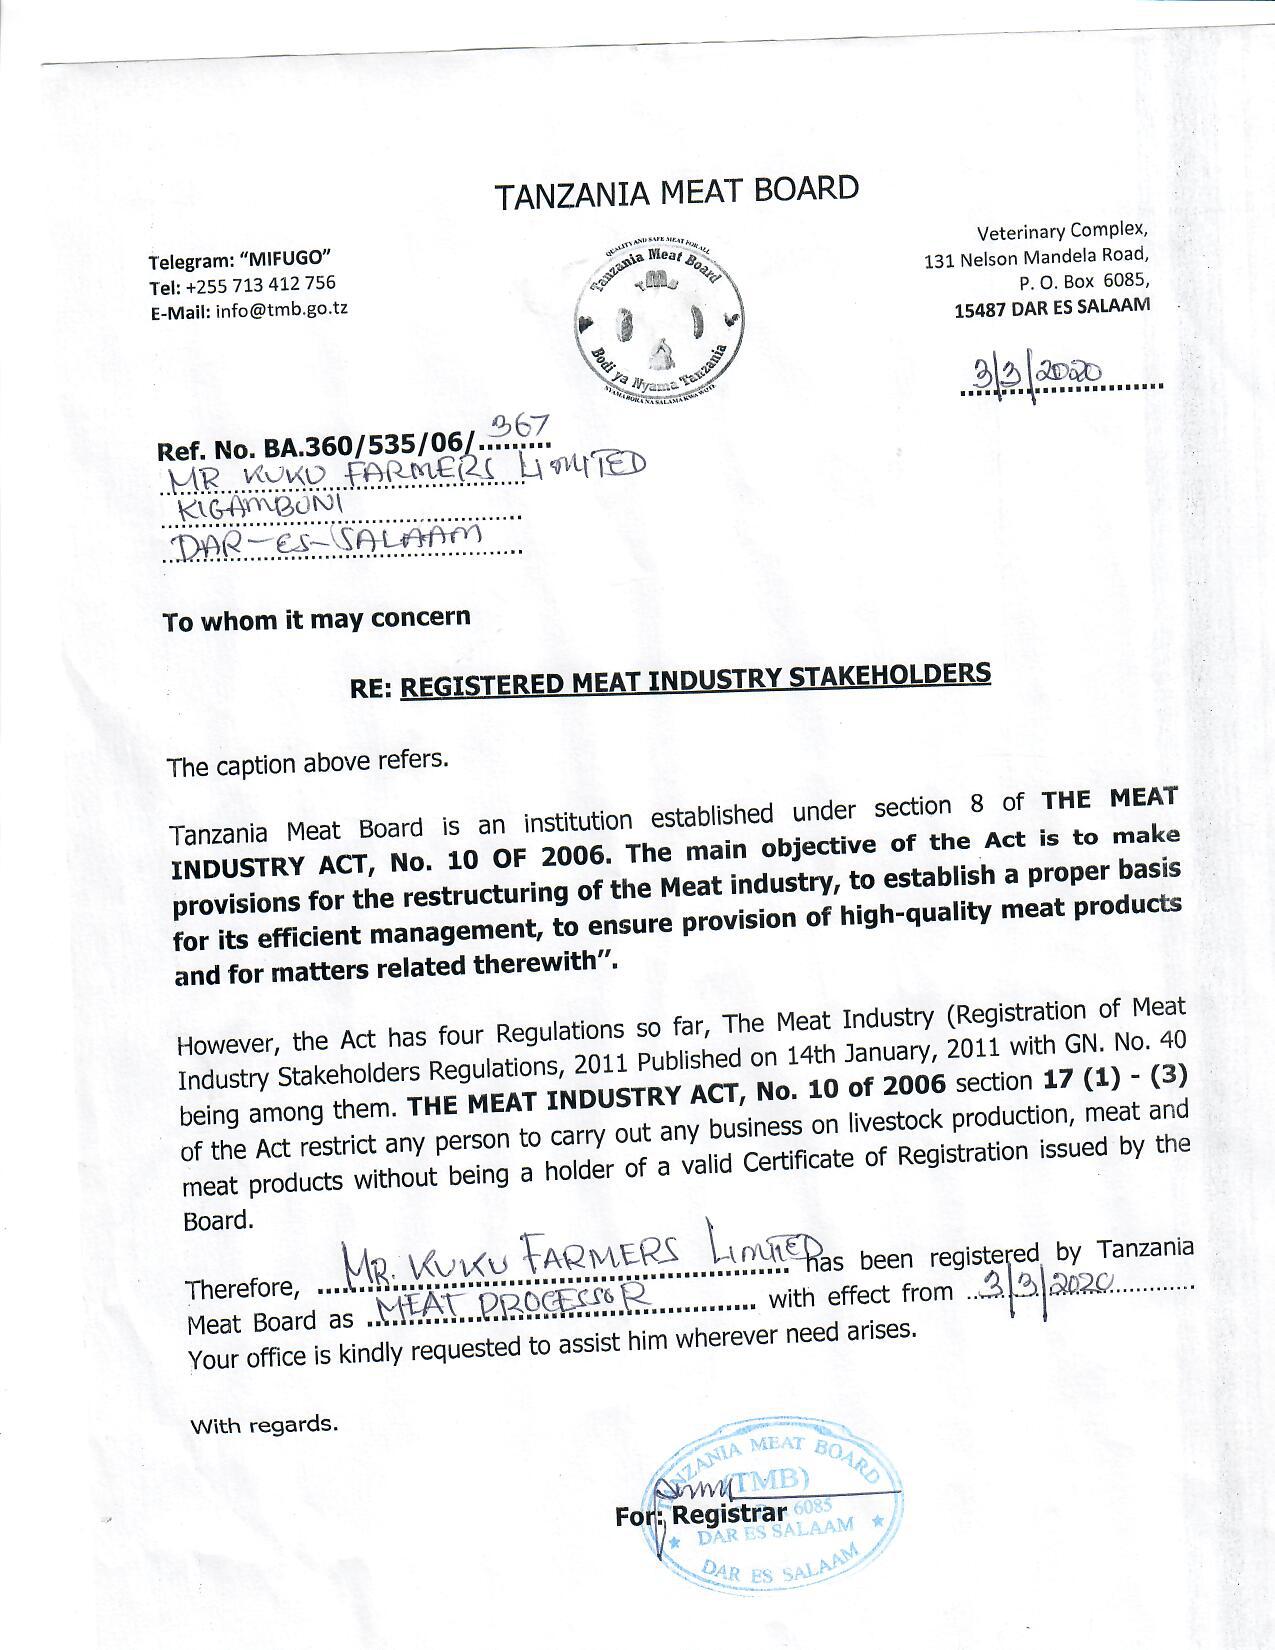 TANZANIA MEAT BOARD
Telegram: “MIFUGO”
Tel: +255 713 412 756
E-Mail: info@tmb.go.tz
QUALITY AND SAFE MEAT FOR ALL
Tanzania Meat Board
Bodi ya Nyama Tanzania
NYAMA BORA NA SALAMA KWA WOTE
Veterinary Complex,
131 Nelson Mandela Road,
P. O. Box 6085,
15487 DAR ES SALAAM
3/3/2020
Ref. No. BA.360/535/06/...367...
MR KUKU FARMERS LIMITED
KIGAMBONI
DAR-ES-SALAAM
To whom it may concern
RE: REGISTERED MEAT INDUSTRY STAKEHOLDERS
The caption above refers.
Tanzania Meat Board is an institution established under section 8 of THE MEAT
INDUSTRY ACT, No. 10 OF 2006. The main objective of the Act is to make
provisions for the restructuring of the Meat industry, to establish a proper basis
for its efficient management, to ensure provision of high-quality meat products
and for matters related therewith”.
However, the Act has four Regulations so far, The Meat Industry (Registration of Meat
Industry Stakeholders Regulations, 2011 Published on 14th January, 2011 with GN. No. 40
being among them. THE MEAT INDUSTRY ACT, No. 10 of 2006 section 17 (1) - (3)
of the Act restrict any person to carry out any business on livestock production, meat and
meat products without being a holder of a valid Certificate of Registration issued by the
Board.
Therefore, MR. KUKU FARMERS LIMITED has been registered by Tanzania
Meat Board as MEAT PROCESSOR with effect from 3/3/2020
Your office is kindly requested to assist him wherever need arises.
With regards.
TANZANIA MEAT BOARD
(TMB)
For: Registrar
6085
DAR ES SALAAM
DAR ES SALAAM